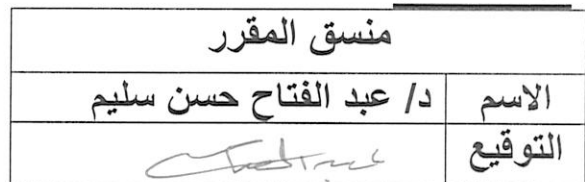 منسق المقرر
الاسم د/ عبد الفتاح حسن سليم
التوقيع